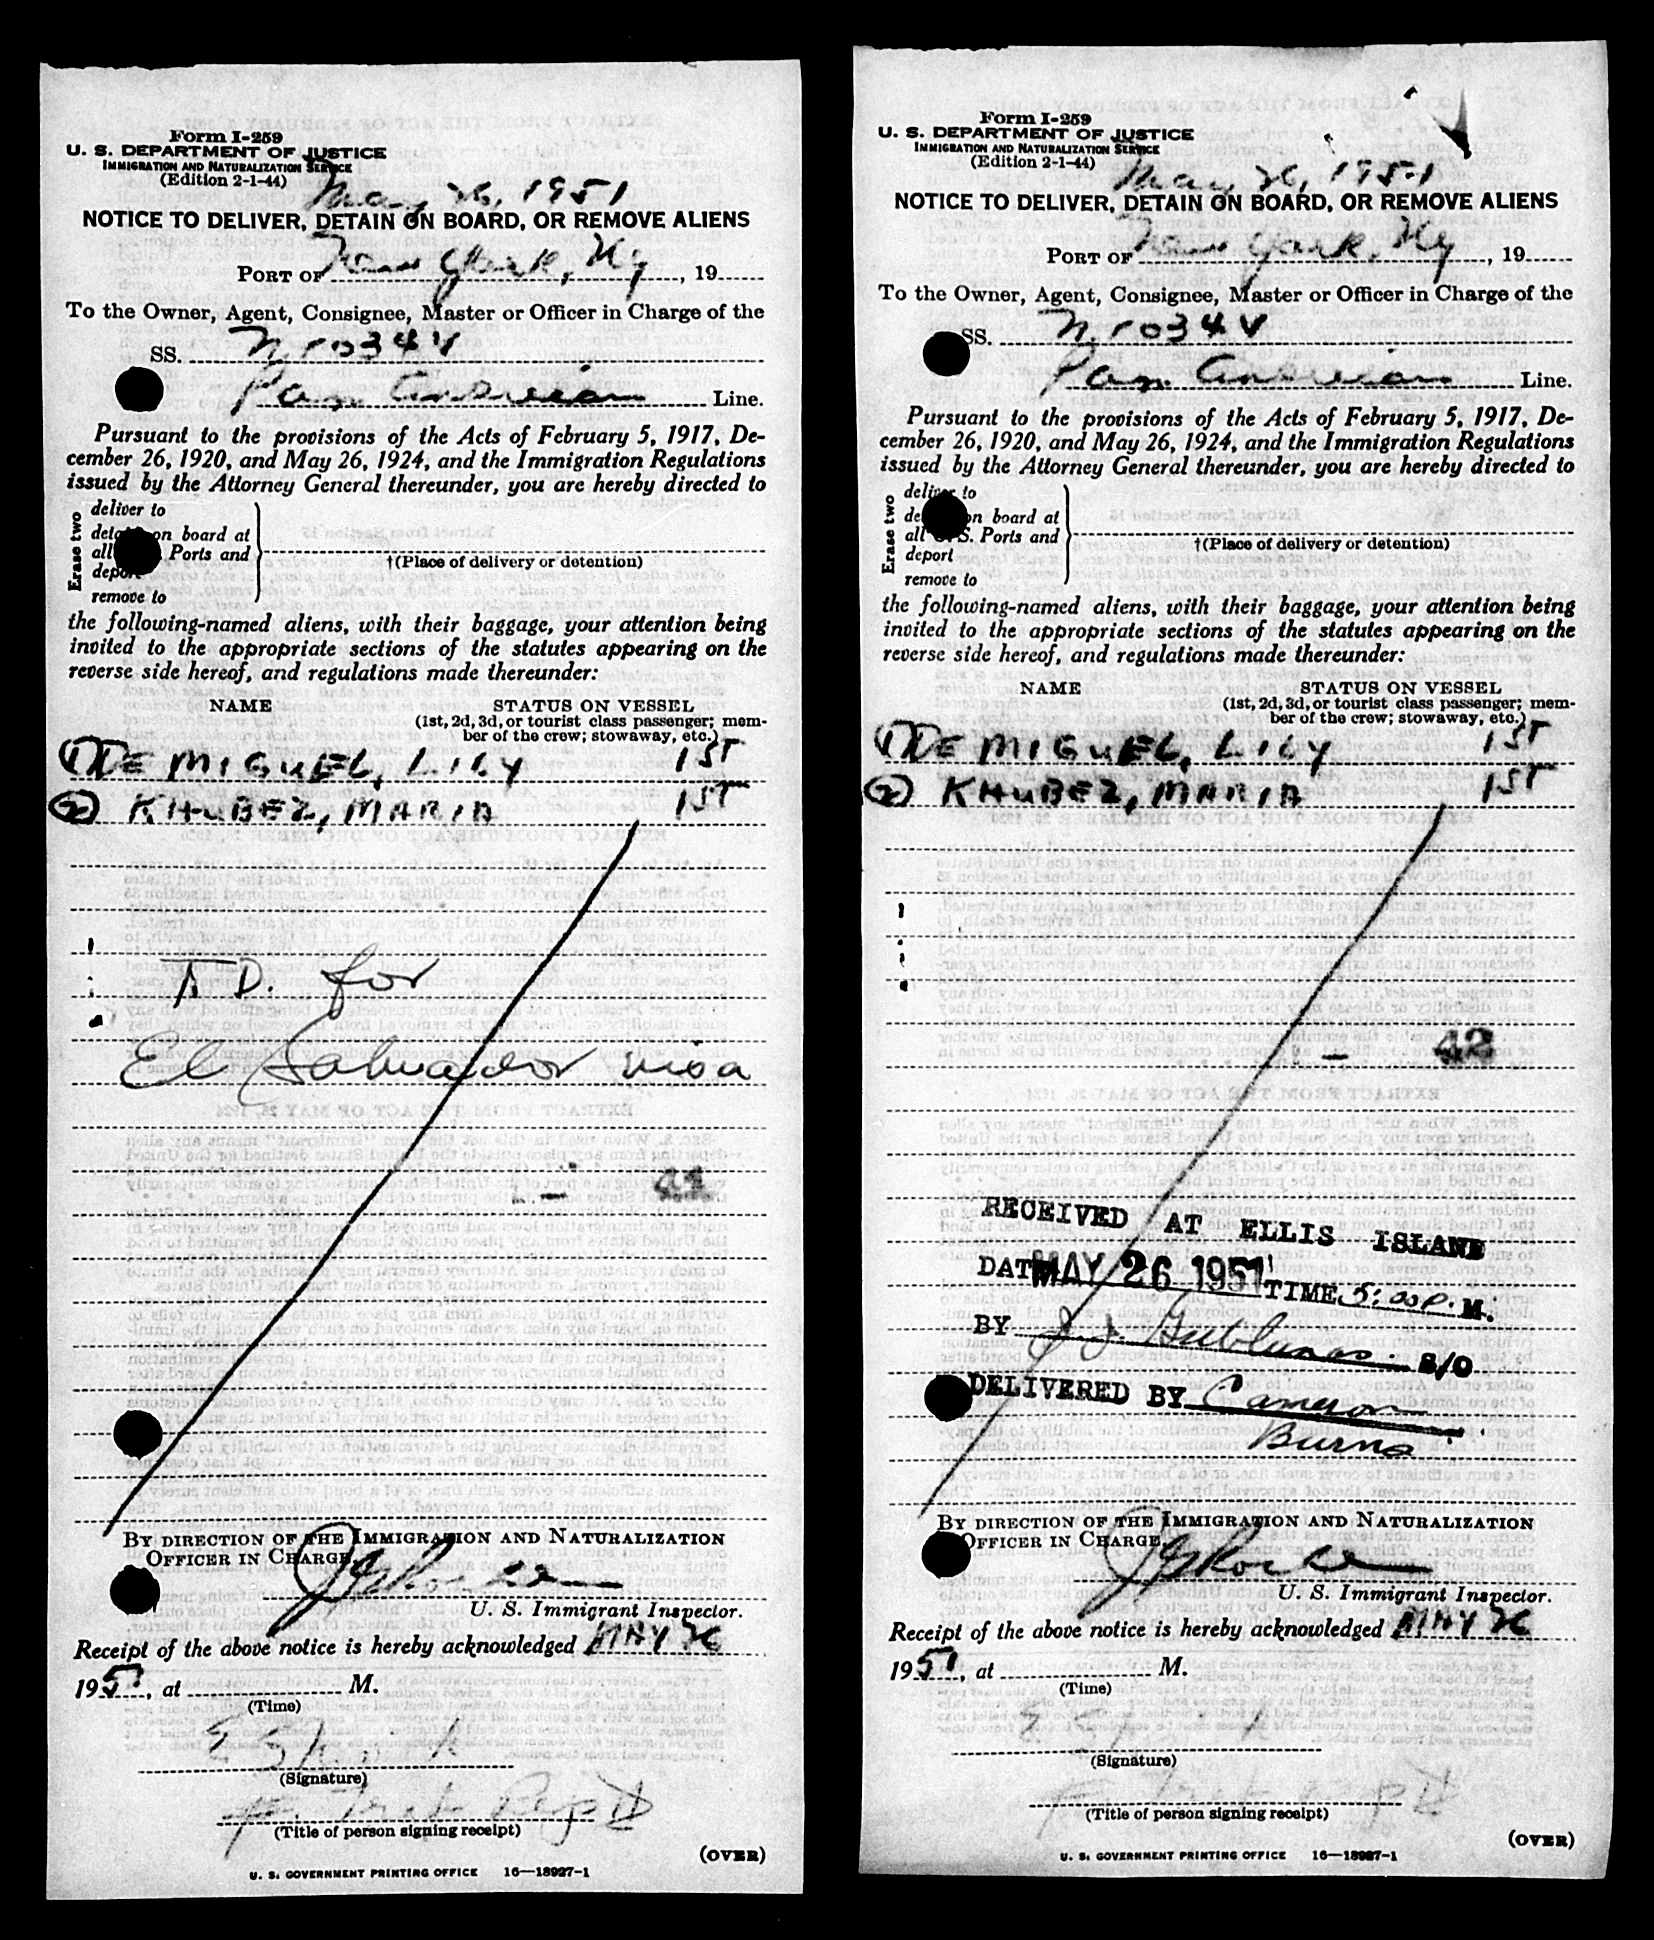 Form I-259
U. S. DEPARTMENT OF JUSTICE
IMMIGRATION AND NATURALIZATION SERVICE
(Edition 2-1-44)
May 26, 1951
NOTICE TO DELIVER, DETAIN ON BOARD, OR REMOVE ALIENS
PORT OF New York, Ny, 19
To the Owner, Agent, Consignee, Master or Officer in Charge of the
SS. N 1034 V
Pan American Line.
Pursuant to the provisions of the Acts of February 5, 1917, De-
cember 26, 1920, and May 26, 1924, and the Immigration Regulations
issued by the Attorney General thereunder, you are hereby directed to
Erase two
deliver to
detain on board at
all Ports and
deport
remove to
†(Place of delivery or detention)
the following-named aliens, with their baggage, your attention being
invited to the appropriate sections of the statutes appearing on the
reverse side hereof, and regulations made thereunder:
NAME STATUS ON VESSEL
(1st, 2d, 3d, or tourist class passenger; mem-
ber of the crew; stowaway, etc.)
(1) DE MIGUEL, LILY 1ST
(2) KHUBEZ, MARIA 1ST
T. D. for
El Salvador visa
- 41
BY DIRECTION OF THE IMMIGRATION AND NATURALIZATION
OFFICER IN CHARGE
U. S. Immigrant Inspector.
Receipt of the above notice is hereby acknowledged MAY 26
1951, at M.
(Time)
(Signature)
(Title of person signing receipt)
(OVER)
U. S. GOVERNMENT PRINTING OFFICE 16—18927-1
Form I-259
U. S. DEPARTMENT OF JUSTICE
IMMIGRATION AND NATURALIZATION SERVICE
(Edition 2-1-44)
May 26, 1951
NOTICE TO DELIVER, DETAIN ON BOARD, OR REMOVE ALIENS
PORT OF New York, Ny, 19
To the Owner, Agent, Consignee, Master or Officer in Charge of the
SS. N 1034 V
Pan American Line.
Pursuant to the provisions of the Acts of February 5, 1917, De-
cember 26, 1920, and May 26, 1924, and the Immigration Regulations
issued by the Attorney General thereunder, you are hereby directed to
Erase two
deliver to
on board at
all U. S. Ports and
deport
remove to
†(Place of delivery or detention)
the following-named aliens, with their baggage, your attention being
invited to the appropriate sections of the statutes appearing on the
reverse side hereof, and regulations made thereunder:
NAME STATUS ON VESSEL
(1st, 2d, 3d, or tourist class passenger; mem-
ber of the crew; stowaway, etc.)
(1) DE MIGUEL, LILY 1ST
(2) KHUBEZ, MARIA 1ST
- 42
RECEIVED AT ELLIS ISLAND
DATE MAY 26 1951 TIME 5:00 P. M.
BY S/O
DELIVERED BY Cameron
Burns
BY DIRECTION OF THE IMMIGRATION AND NATURALIZATION
OFFICER IN CHARGE
U. S. Immigrant Inspector.
Receipt of the above notice is hereby acknowledged MAY 26
1951, at M.
(Time)
(Signature)
(Title of person signing receipt)
(OVER)
U. S. GOVERNMENT PRINTING OFFICE 16—18927-1